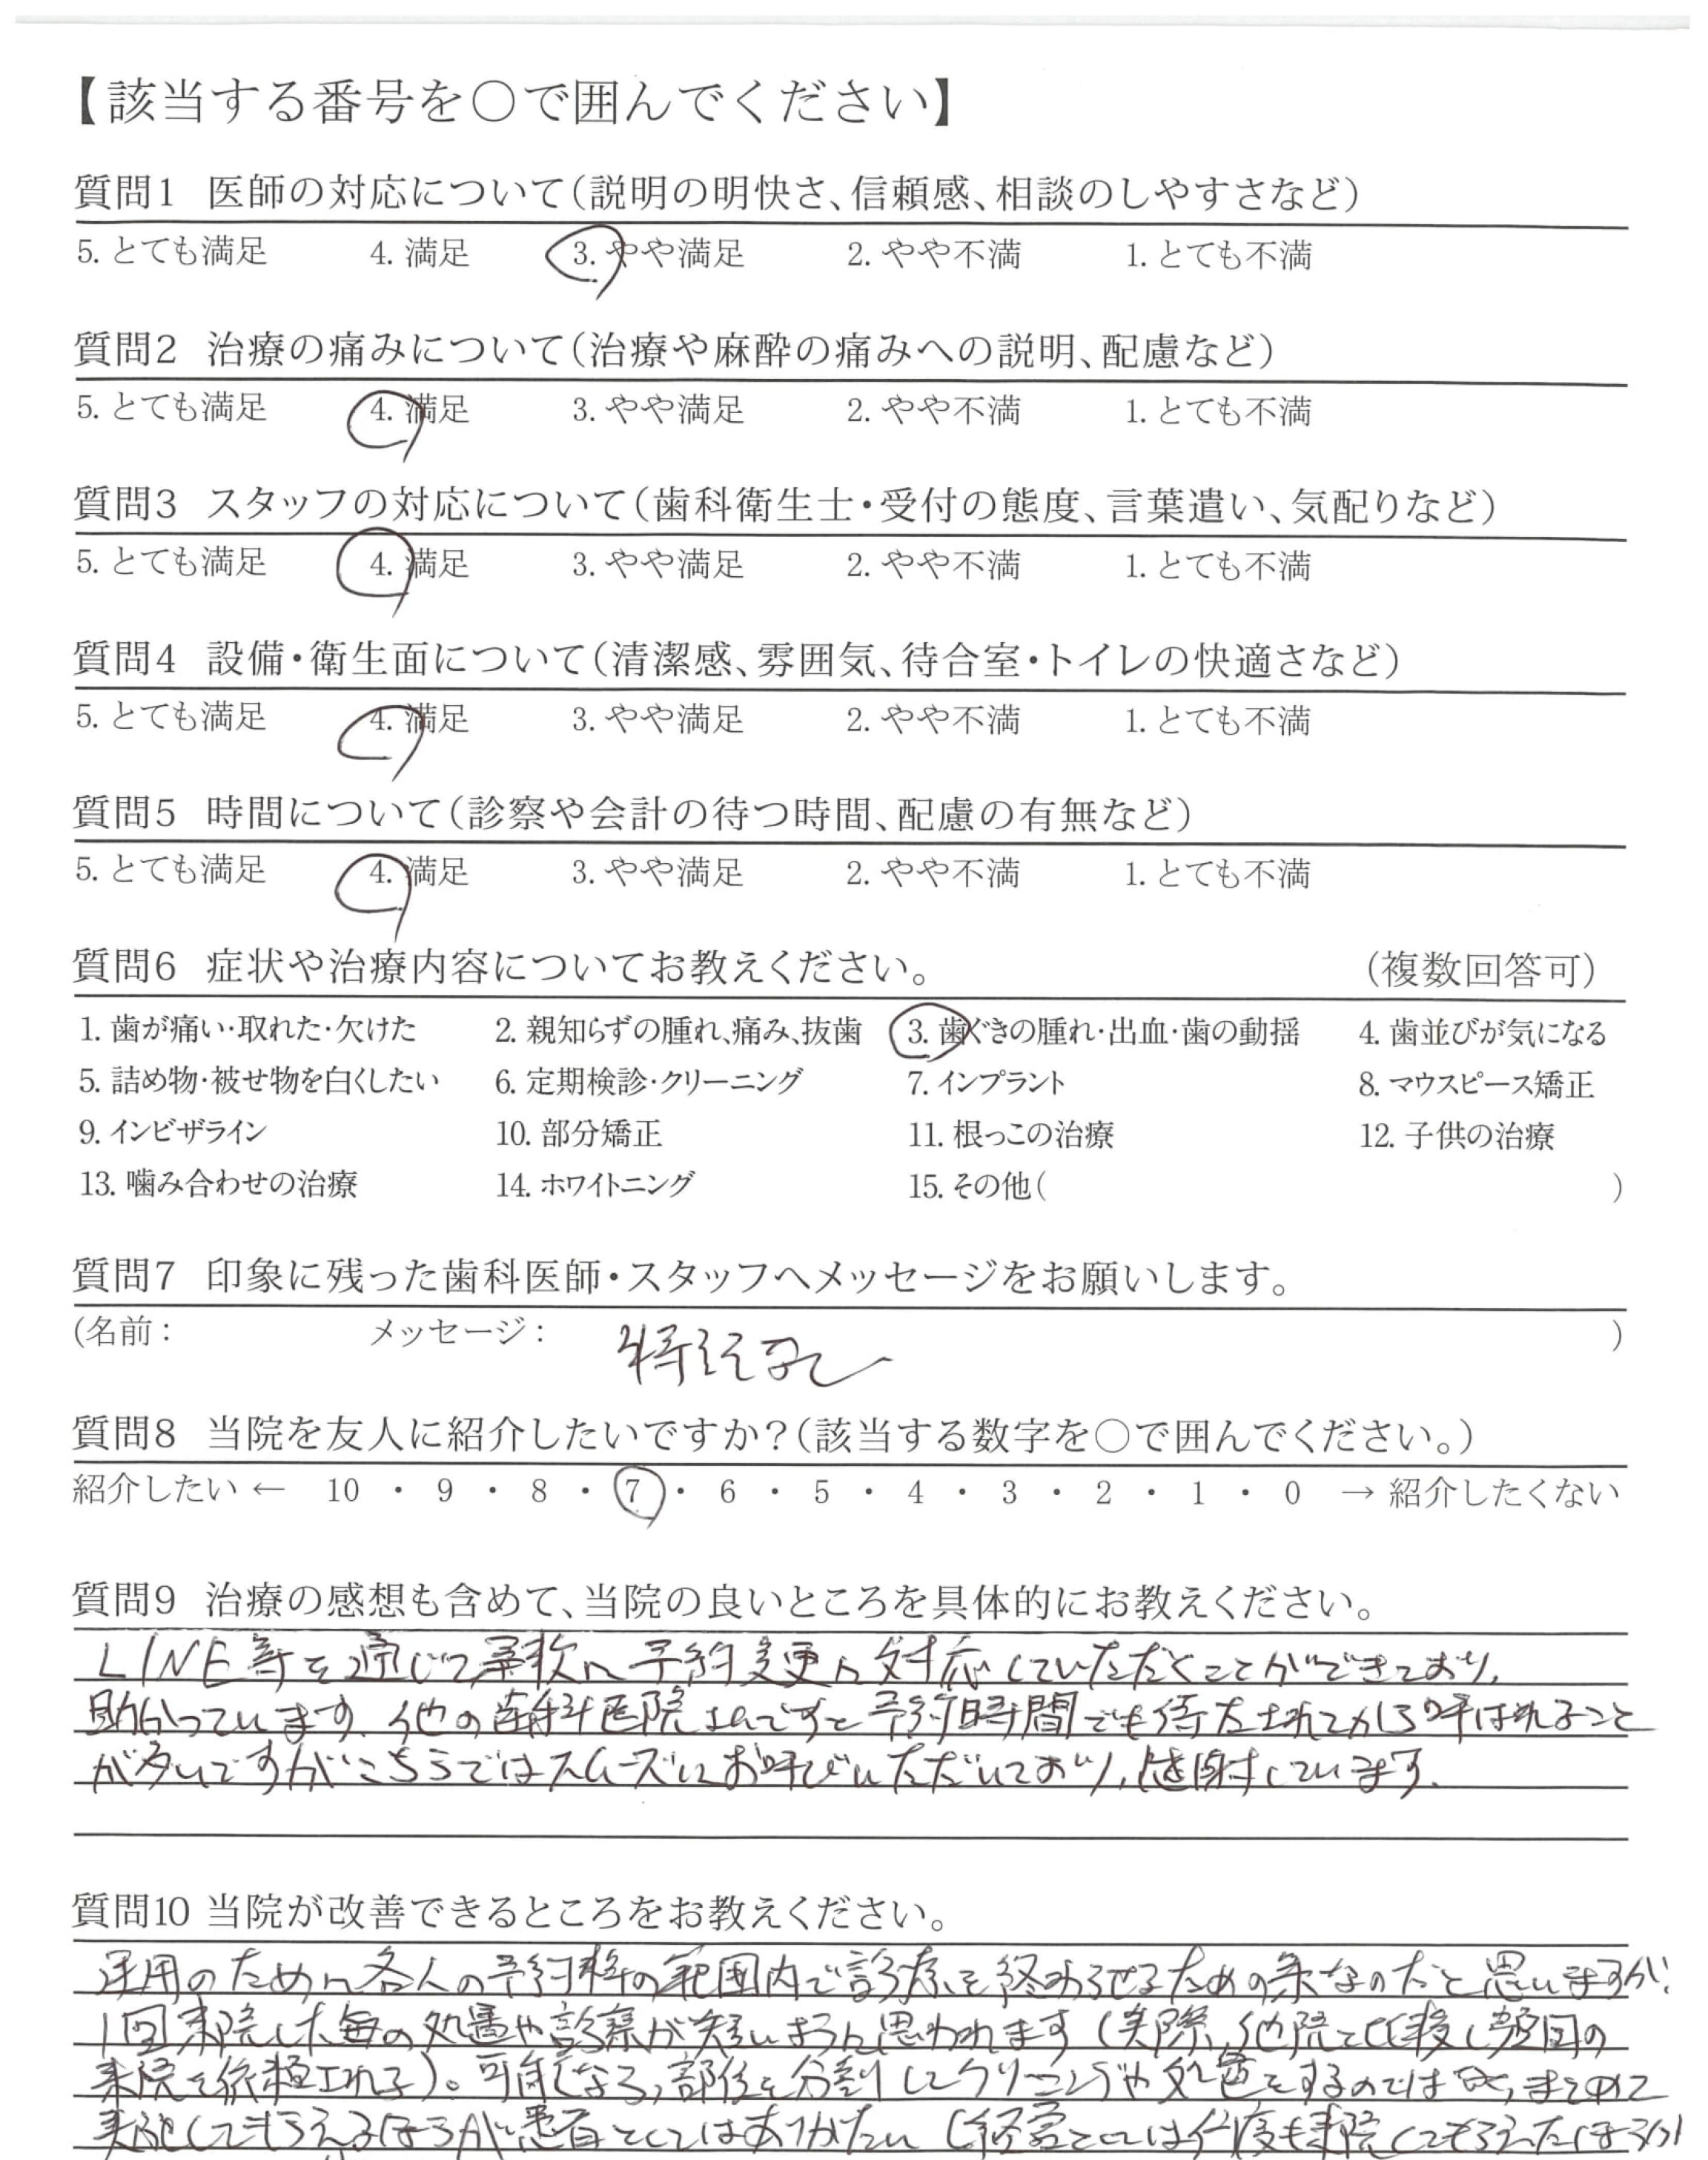 【該当する番号を〇で囲んでください】
質問1 医師の対応について(説明の明快さ、信頼感、相談のしやすさなど)
5. とても満足 4. 満足 3. やや満足 2. やや不満 1. とても不満
質問2 治療の痛みについて(治療や麻酔の痛みへの説明、配慮など)
5. とても満足 4. 満足 3. やや満足 2. やや不満 1. とても不満
質問3 スタッフの対応について(歯科衛生士・受付の態度、言葉遣い、気配りなど)
5. とても満足 4. 満足 3. やや満足 2. やや不満 1. とても不満
質問4 設備・衛生面について(清潔感、雰囲気、待合室・トイレの快適さなど)
5. とても満足 4. 満足 3. やや満足 2. やや不満 1. とても不満
質問5 時間について(診察や会計の待つ時間、配慮の有無など)
5. とても満足 4. 満足 3. やや満足 2. やや不満 1. とても不満
質問6 症状や治療内容についてお教えください。 (複数回答可)
1. 歯が痛い・取れた・欠けた 2. 親知らずの腫れ、痛み、抜歯 3. 歯ぐきの腫れ・出血・歯の動揺 4. 歯並びが気になる
5. 詰め物・被せ物を白くしたい 6. 定期検診・クリーニング 7. インプラント 8. マウスピース矯正
9. インビザライン 10. 部分矯正 11. 根っこの治療 12. 子供の治療
13. 噛み合わせの治療 14. ホワイトニング 15. その他( )
質問7 印象に残った歯科医師・スタッフへメッセージをお願いします。
(名前: メッセージ: 特になし )
質問8 当院を友人に紹介したいですか?(該当する数字を〇で囲んでください。)
紹介したい ← 10 ・ 9 ・ 8 ・ 7 ・ 6 ・ 5 ・ 4 ・ 3 ・ 2 ・ 1 ・ 0 → 紹介したくない
質問9 治療の感想も含めて、当院の良いところを具体的にお教えください。
LINE等を通じて柔軟に予約変更に対応していただくことができており、
助かっています。他の歯科医院さんですと予約時間でも待たされてから呼ばれること
が多いですがこちらではスムーズにお呼びいただいており、感謝しています。
質問10 当院が改善できるところをお教えください。
運用のために各人の予約枠の範囲内で診療を終わらせるための策なのだと思いますが、
1回来院した毎の処置や診察が短いように思われます(実際、他院と比較し頻回の
来院を依頼される)。可能なら、部位を分割してクリーニングや処置をするのではなく、まとめて
実施してもらえるほうが患者としてはありがたい(経営としては何度も来院してもらえたほうが